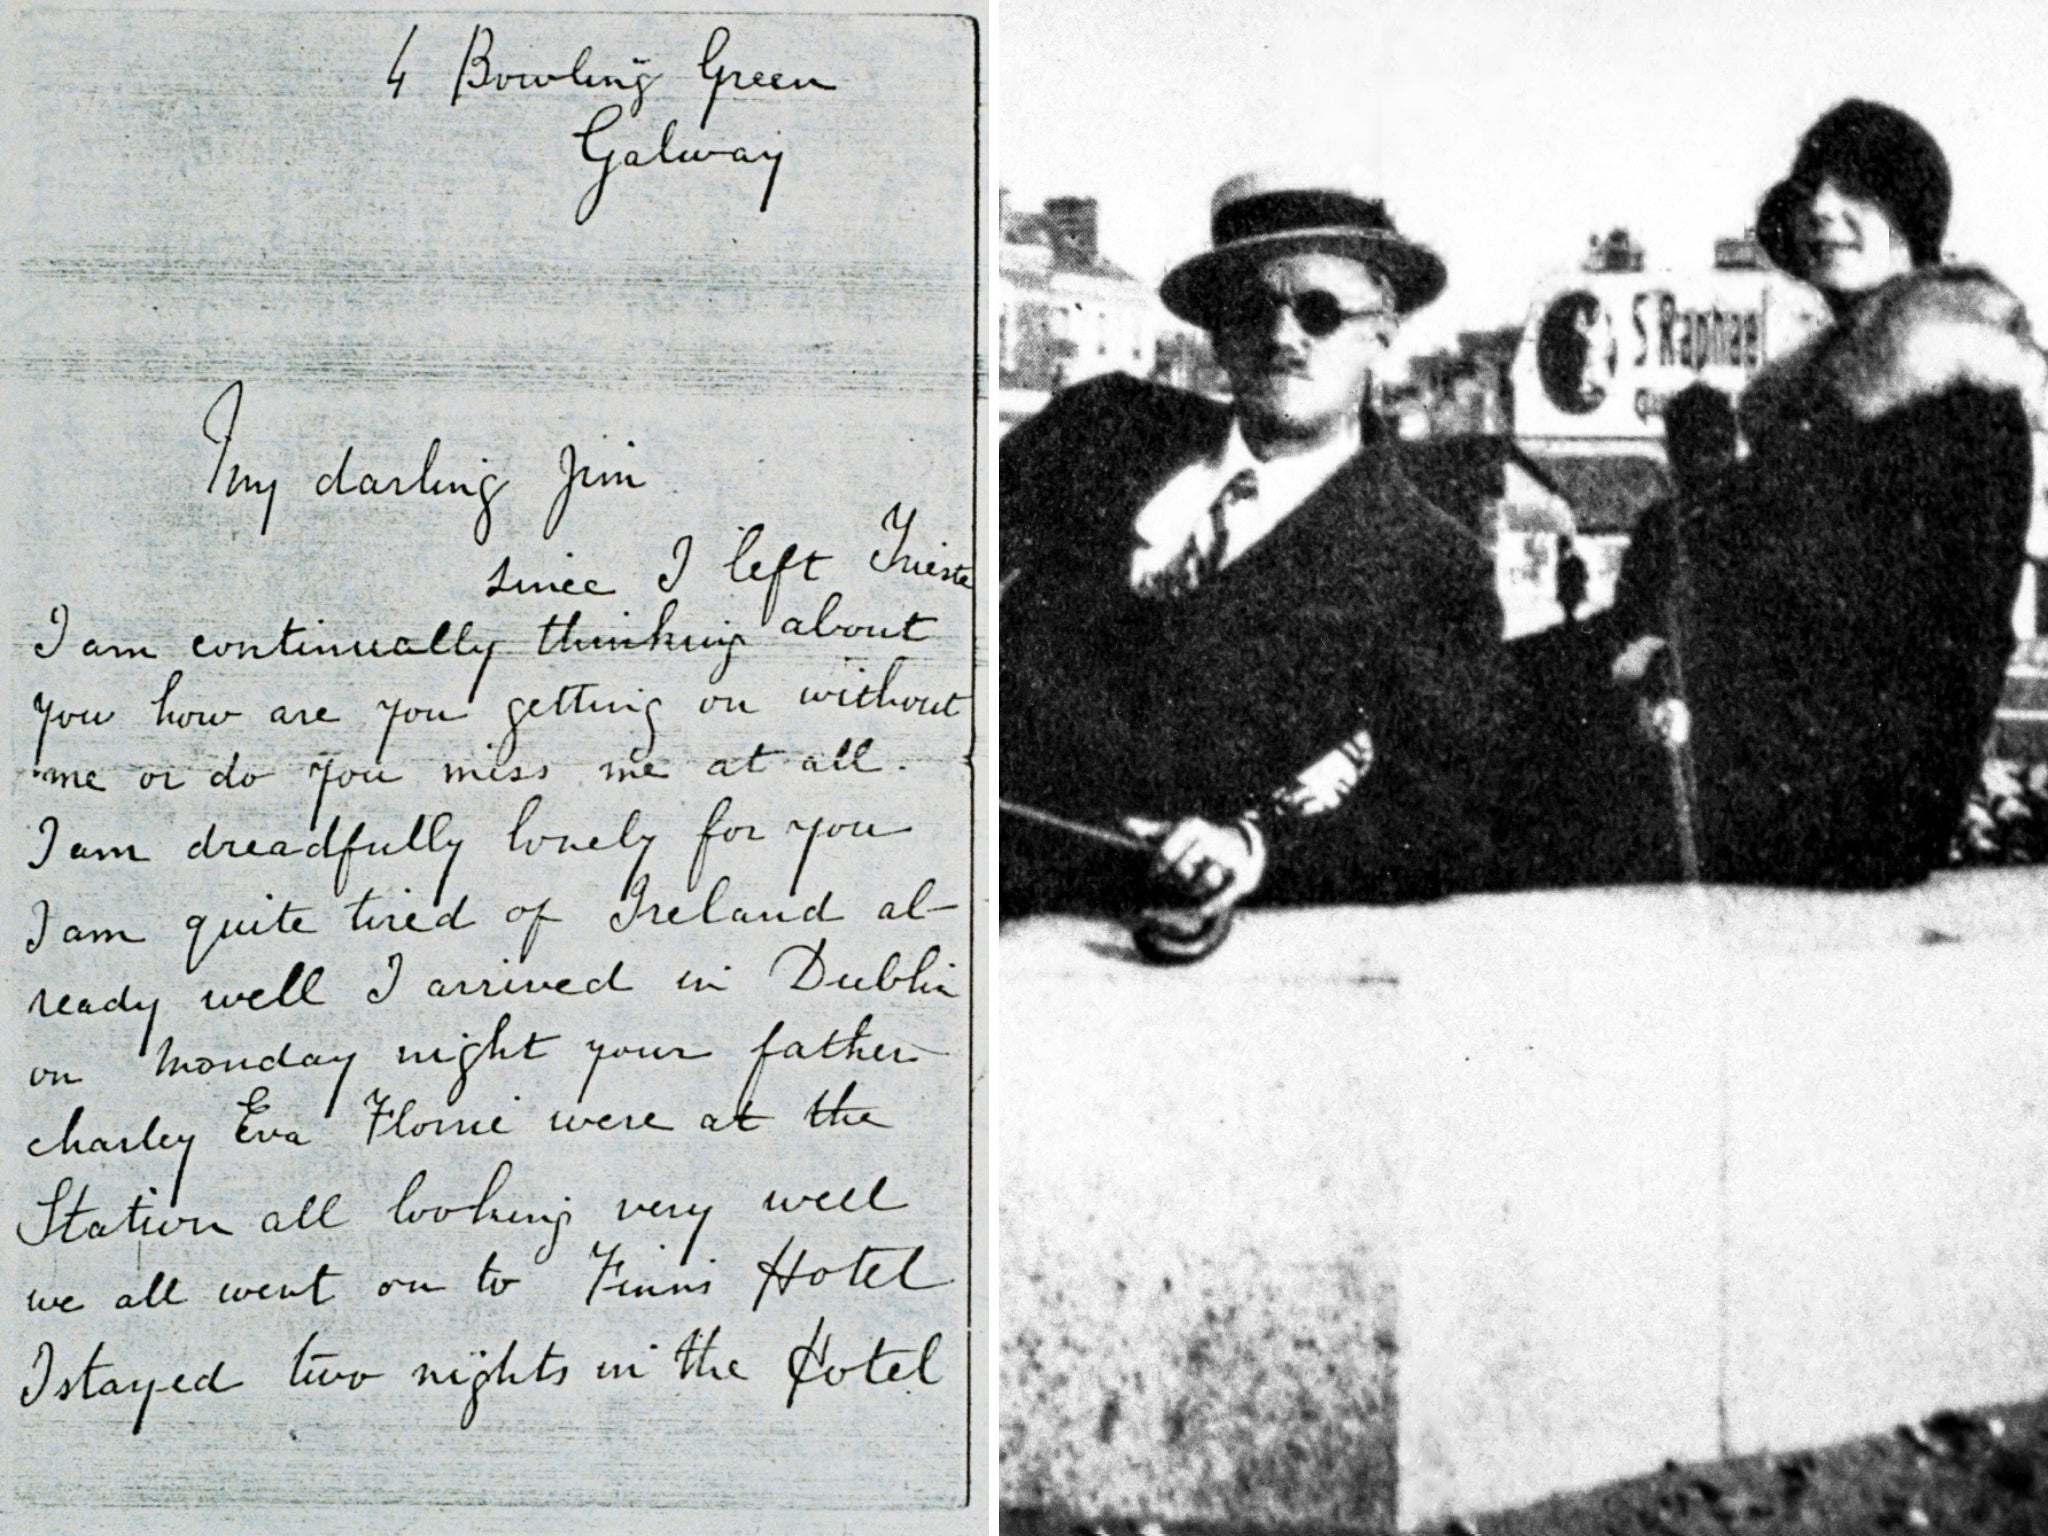 4 Bowling Green
Galway
My darling Jim
since I left Trieste
I am continually thinking about
you how are you getting on without
me or do you miss me at all.
I am dreadfully lonely for you
I am quite tired of Ireland al-
ready well I arrived in Dublin
on Monday night your father
charley Eva Florrie were at the
Station all looking very well
we all went on to Finns Hotel
I stayed two nights in the Hotel
S Raphael